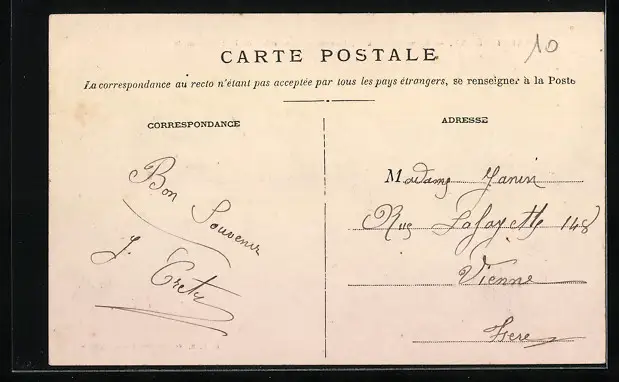 10
CARTE POSTALE
La correspondance au recto n'étant pas acceptée par tous les pays étrangers, se renseigner à la Poste
CORRESPONDANCE
ADRESSE
Bon
Souvenir
J.
Madame Janin
Rue Lafayette 148
Vienne
Isere